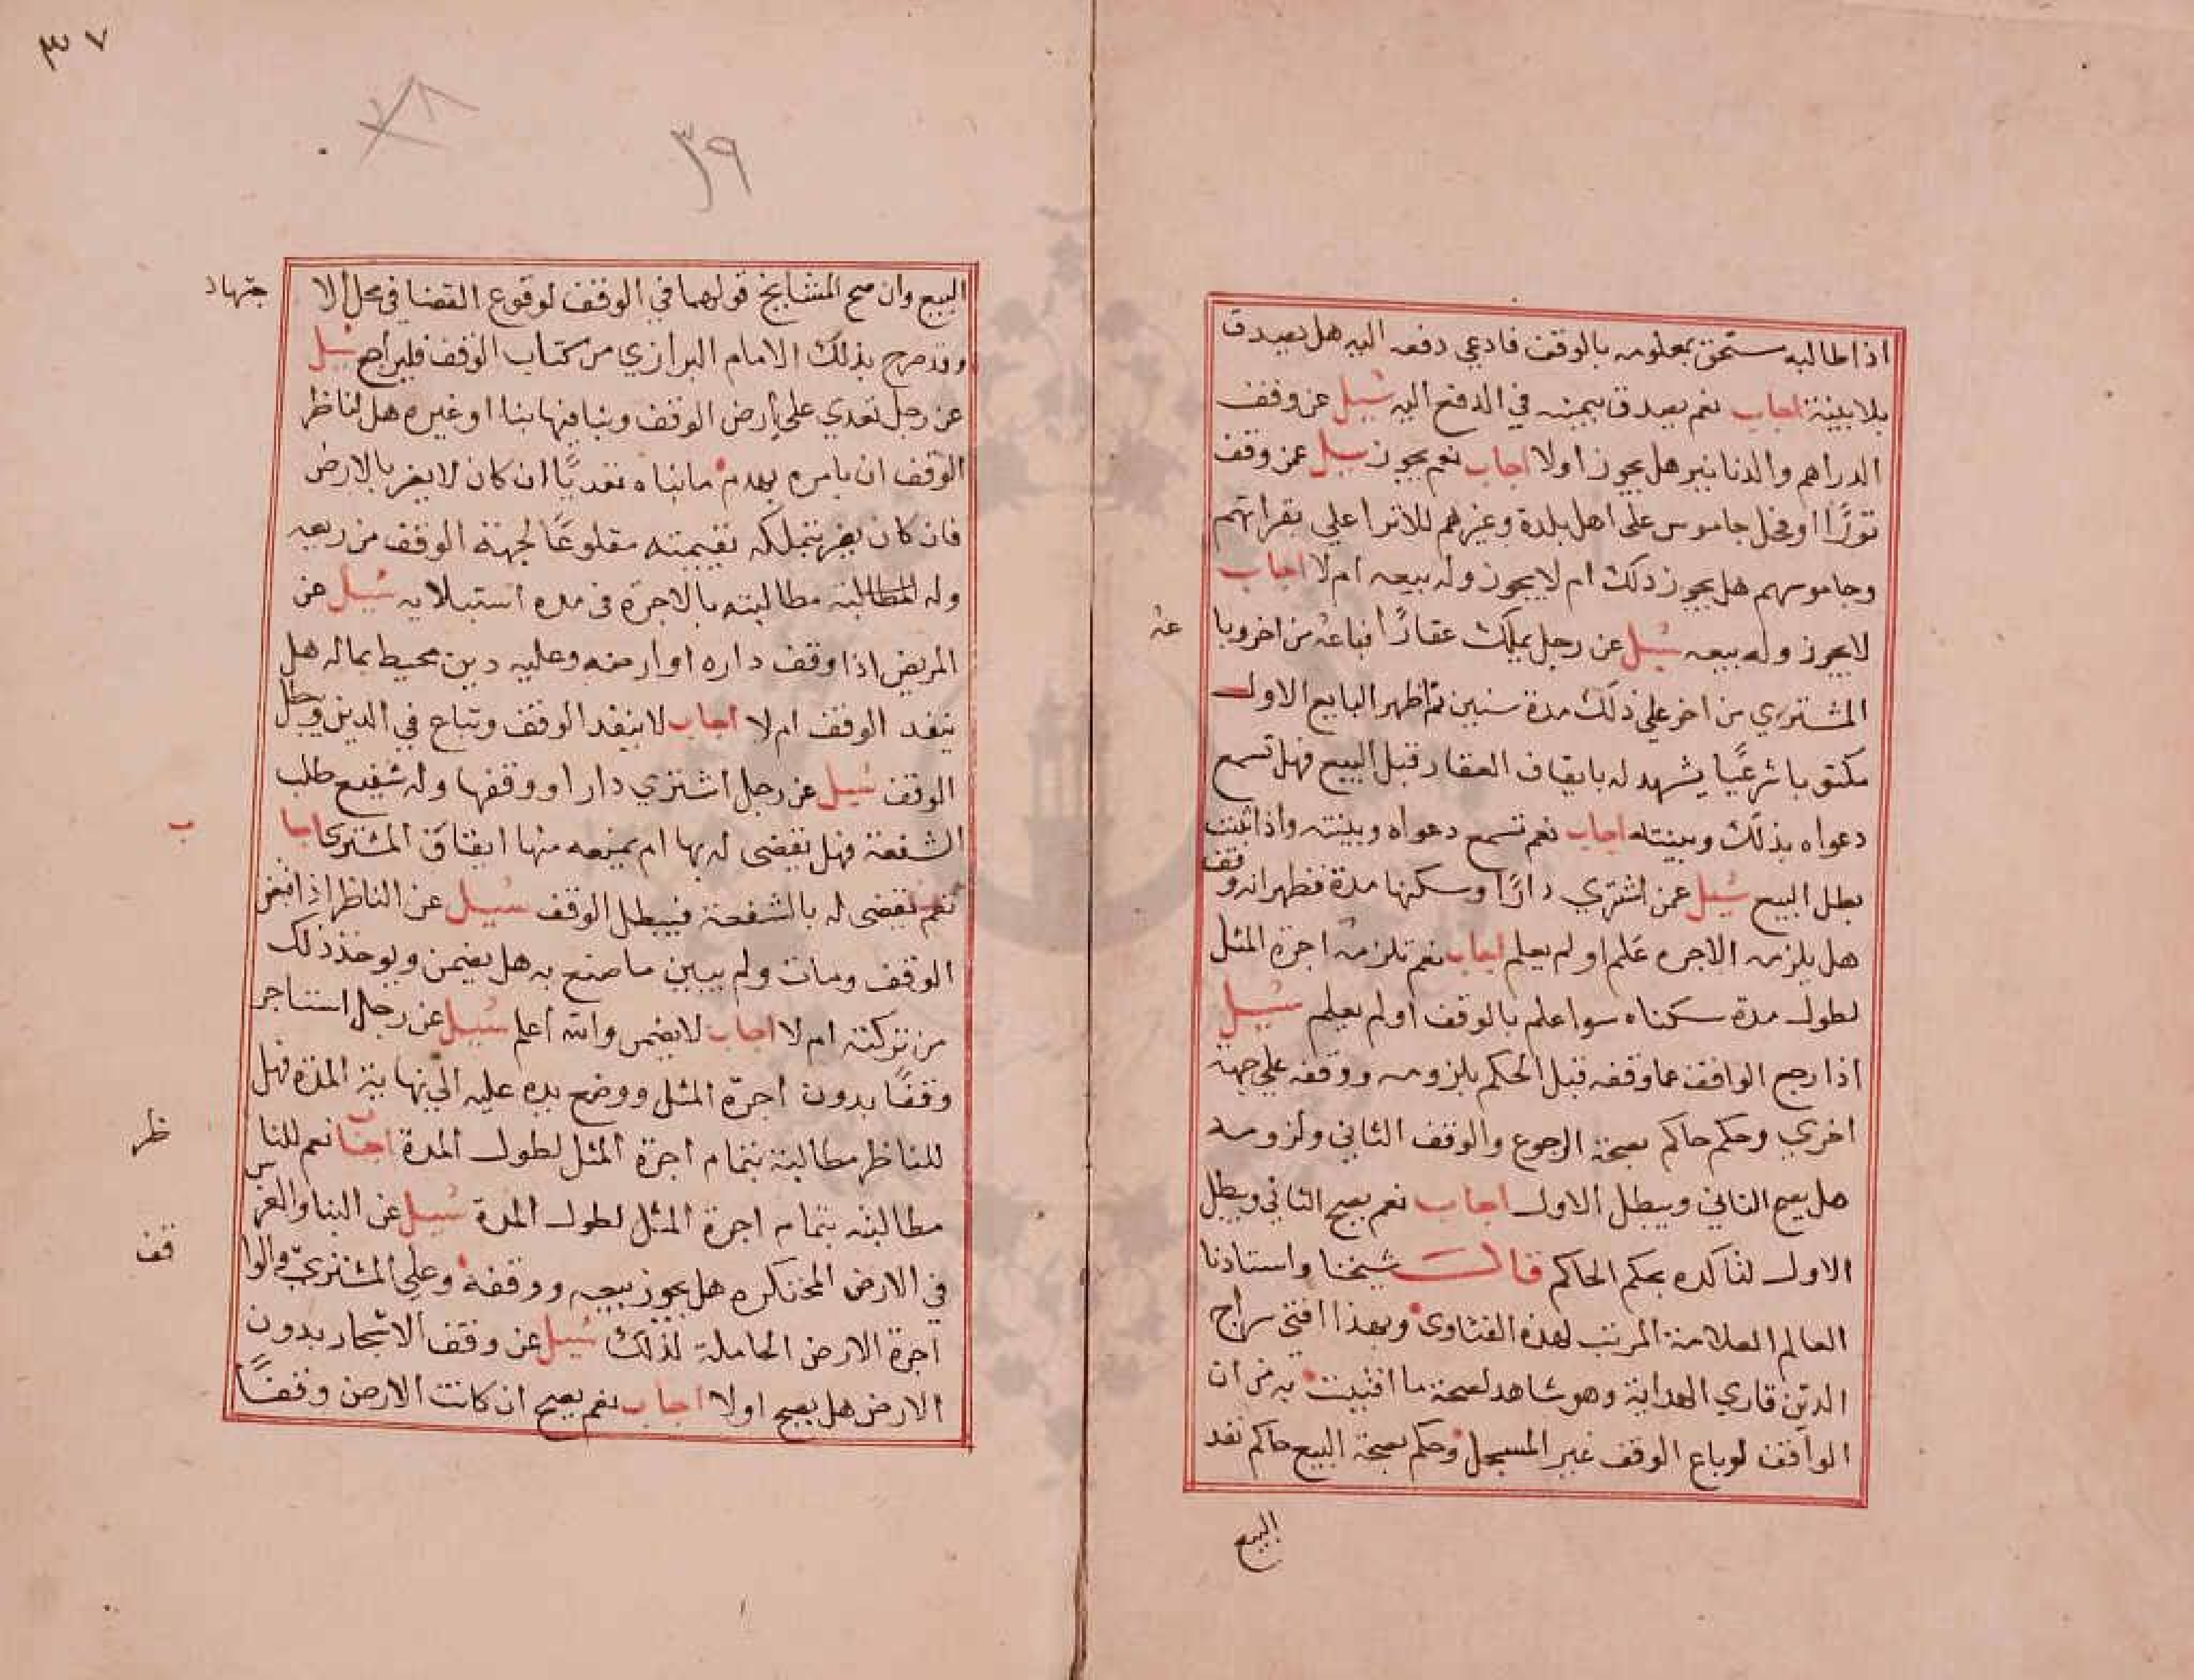 اذا طالبه مستحق بمعلومه بالوقف فادعي دفعه اليه هل يصدق
بلا بينة اجاب نعم يصدق بيمينه في الدفع اليه سُيل عن وقف
الدراهم والدنانير هل يجوز اولا اجاب نعم يجوز سيل عن وقف
ثورًا او فحل جاموس على اهل بلدة وغيرهم للانزا علي بقراتهم
وجاموسهم هل يجوز ذلك ام لا يجوز وله بيعه ام لا اجاب
لا يجوز وله بيعه سُيل عن رجل يملك عقارًا فباعه من اخر وبا
عه
المشتري من اخر علي ذلك مدة سنين ثم اظهر البايع الاول
مكتوبا شرعيًا يشهد له بايقاف العقار قبل البيع فهل تسمع
دعواه بذلك وبينته اجاب نعم تسمع دعواه وبينته واذا ثبت
بطل البيع سُيل عمن اشتري دارًا وسكنها مدة فظهر انه وقف
هل يلزمه الاجره علم او لم يعلم اجاب نعم تلزمه اجرة المثل
لطول مدة سكناه سوا علم بالوقف او لم يعلم سُيل
اذا رجع الواقف عما وقفه قبل الحكم بلزومه ووقفه علي جهة
اخري وحكم حاكم بصحة الرجوع والوقف الثاني ولزومه
هل يصح الثاني ويبطل الاول اجاب نعم يصح الثاني ويبطل
الاول لتاكده بحكم الحاكم قالت شيخنا واستاذنا
العالم العلامة المرتب لهذه الفتاوى وبهذا افتي سراج
الدين قاري الهداية وهو شاهد لصحة ما افتيت به من ان
الواقف لو باع الوقف غير المسجل وحكم بصحة البيع حاكم نفد
البيع
٣٧
٣٨
٣٩
البيع وان صح المشايخ قولهما في الوقف لوقوع القضا في محل الا
جتهاد
وقد صرح بذلك الامام البزازي من كتاب الوقف فليراجع سُيل
عن رجل تعدي علي ارض الوقف وبنا فيها بنا او غيره هل لناظر
الوقف ان يامره بهدم ما بناه تعديًا ان كان لا يضر بالارض
فان كان يضر يتملكه بقيمته مقلوعًا لجهة الوقف من ريعه
وله المطالبة مطالبته بالاجرة في مدة استيلايه سُيل عن
المريض اذا وقف داره او ارضه وعليه دين محيط بماله هل
ينفد الوقف ام لا اجاب لا ينفد الوقف وتباع في الدين وبطل
الوقف سُيل عن رجل اشتري دارا ووقفها وله شفيع طلب
الشفعة فهل يقضى له بها ام يمنعه منها ايقاف المشترى اجا
ب
نعم يقضى له بالشفعة فيبطل الوقف سيل عن الناظر اذا قبض
الوقف ومات ولم يبين ما صنع به هل يضمن ويوخذ ذلك
من تركته ام لا اجاب لا يضمن والله اعلم سُيل عن رجل استاجر
وقفًا بدون اجرة المثل ووضع يده عليه الي نهاية المدة فهل
للناظر مطالبته بتمام اجرة المثل لطول المدة اجاب نعم للنا
ظر
مطالبته بتمام اجرة المثل لطول المدة سُيل عن البنا والغرس
في الارض المحتكره هل يجوز بيعه ووقفه وعلي المشتري والوا
قف
اجرة الارض الحاملة لذلك سُيل عن وقف الاشجار بدون
الارض هل يصح اولا اجاب نعم يصح ان كانت الارض وقفًا